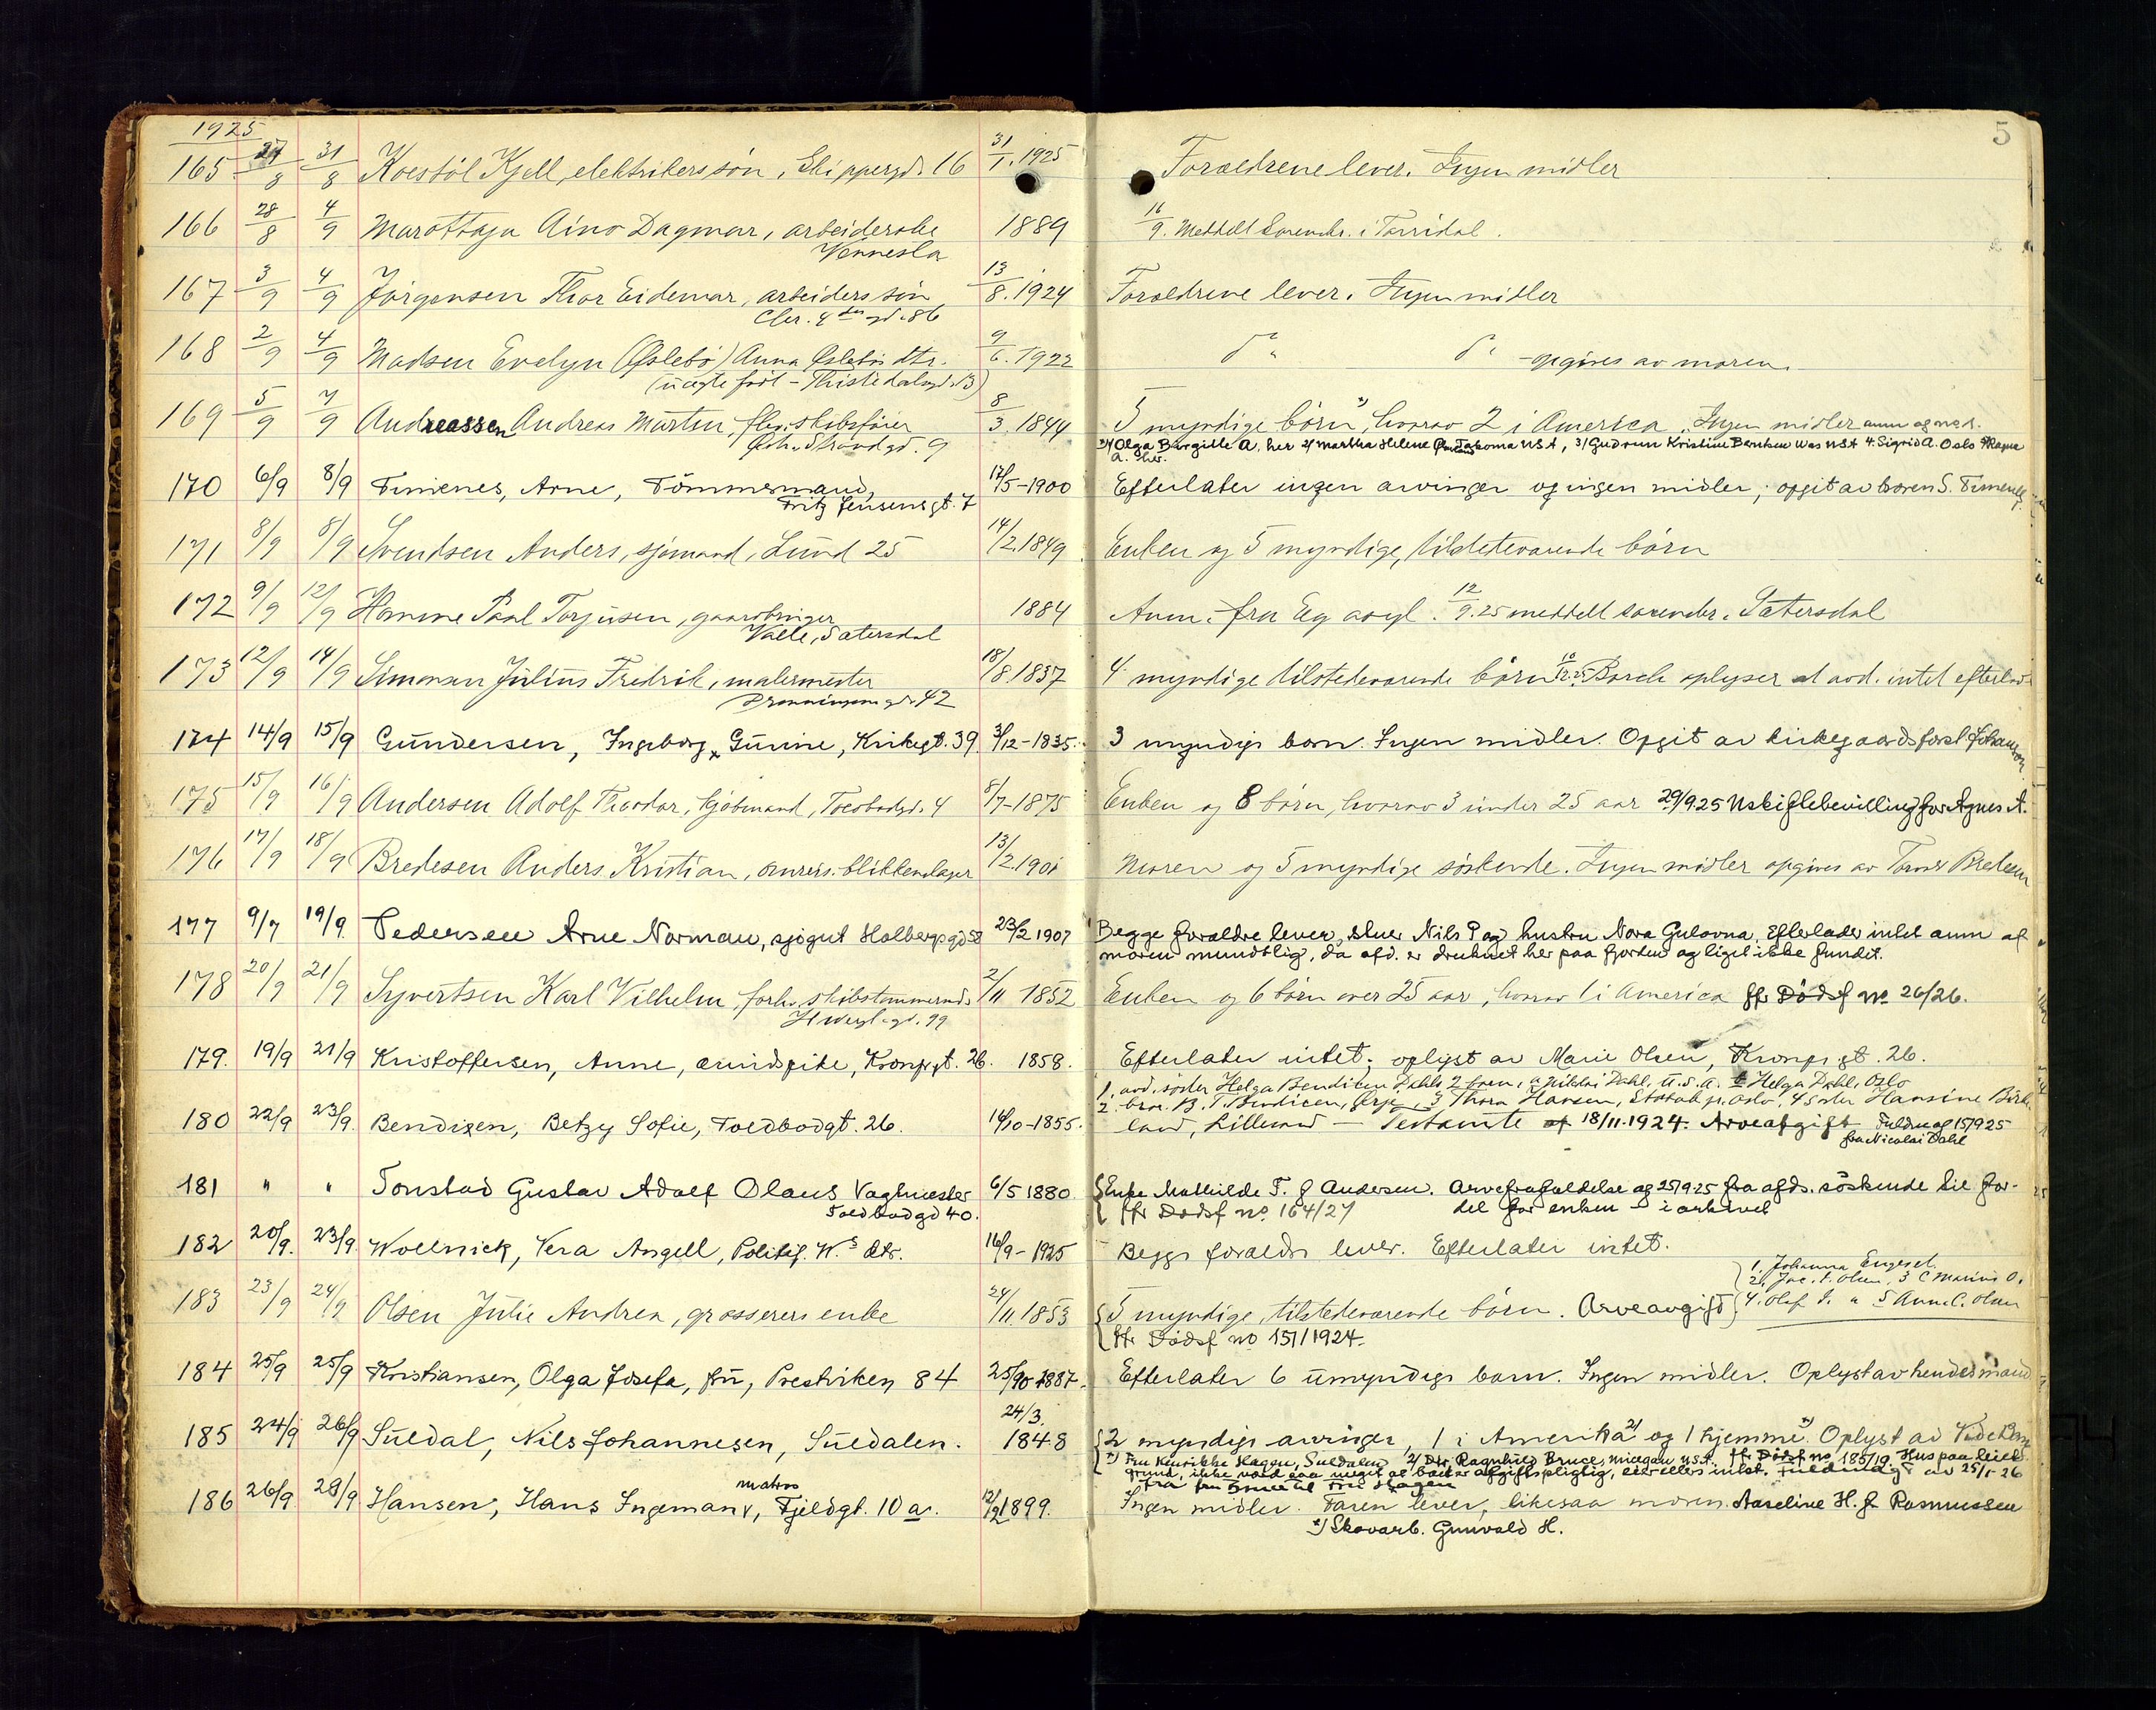 1925
5
165 27/8 31/8 Kjell, elektrikers søn, Skippergd. 16 31/1.1925 Forældrene lever. Ingen midler
166 28/8 4/9 Aino Dagmar, arbeiderske 1889 16/9. Meddelt Sorenskr. i Torridal.
Vennesla
167 3/9 4/9 Jörgensen Thor Eidemar, arbeiders sön, 13/8.1924 Forældrene lever. Ingen midler
Chr. 4des gd. 86
168 2/9 4/9 Madsen Evelyn (Øslebö) Anna Øslebös dtr. 9/6.1922 do do - opgives av moren.
(uægte født - Thistedalsgd. 13)
169 5/9 7/9 Andreassen Andreas Martin, skibsfører 8/3.1844 5 myndige börn x), hvorav 2 i America. Ingen midler anm og
Strandgd. 9
1/ Olga Bergitte A. her 2/ Martha Helene Takoma USA, 3/ Gudrun Kristine Berntsen Was USA 4. Sigrid A. Oslo
A. her.
170 6/9 8/9 Timenes, Arne, Tömmermand, 17/5-1900 Efterlater ingen arvinger og ingen midler; opgit av broren S. Timenes
Fritz Jensens gt. 7
171 8/9 8/9 Svendsen Anders, sjömand, Lund 25 14/2.1849 Enken og 5 myndige, tilstedeværende börn
172 9/9 12/9 Homme Paal Torjusen, gaardbruger 1884 Anm. fra Eg asyl. 12/9.25 meddelt sorenskr. i Sætersdal
Valle, Sætersdal
173 12/9 14/9 Simonsen Julius Fredrik, malermester 18/8.1837 4 myndige tilstedeværende börn Borch oplyser at avd. intet efterlod
Dronningens gd. 42
174 14/9 15/9 Gundersen, Ingeborg Gurine, Kirkegt. 39 3/12-1835. 3 myndige barn. Ingen midler. Opgit av kirkegaardsforst. Johansen
175 15/9 16/9 Andersen Adolf Theodor, kjöbmand, Toldbodgd. 4 8/7-1875 Enken og 8 börn, hvorav 3 under 25 aar 29/9 25 Uskiftebevilling for Agnes A.
176 17/9 18/9 Bredesen Anders Kristian, blikkenslager 13/2.1901 Moren og 5 myndige söskende. Ingen midler opgives av Bredesen
177 9/7 19/9 Pedersen Arne Norman, sjøgut Holbergsgd 58 23/2 1907 Begge forældre lever, Nils P og hustru Nora Gulovna, Efterlader intet anm af
moren mundtlig, da afd. er druknet her paa fjorden og liget ikke fundet.
178 20/9 21/9 Syvertsen Karl Vilhelm, forh. skibstømmermd. 2/11 1852 Enken og 6 börn over 25 aar, hvorav 1 i America ffr Dödsf no 26/26.
H Wergl.gd. 99
179. 19/9 21/9 Kristoffersen, Anne, Kronprgt. 26. 1858. Efterlater intet; oplyst av Marie Olsen, Kronpr gt. 26.
1. avd. söster Helga Bendixen Dahls 2 barn, a Nikolai Dahl, U.S.A. b Helga Dahl, Oslo
2. bror. B. T. Bendixen, 3 Thora Hansen, Oslo, 4 Hansine
180 22/9 23/9. Bendixen, Betzy Sofie, Toldbodgt. 26. 14/10-1855. Lillesand - Testamente af 18/11.1924. Arveafgift Fuldm af 15/9 25
fra Nicolai Dahl
181 " " Tonstad Gustav Adolf Olaus Vagtmester 6/5 1880 Enke Mathilde T. f Andersen. Arvefrafaldelse af 25/9 25 fra afds. söskende til for-
Toldbodgd 40. ffr Dødsf no. 164/27 del for enken - i arkivet
182 20/9. 23/9 Wollnick, Vera Angell, Politif. W.s dtr. 16/9-1925 Begge forældre lever. Efterlater intet.
1. Johanna Engesel.
2, Jac. A. Olsen, 3 C Marius O.
183 23/9 24/9 Olsen Julie Andrea, grosserers enke 24/11.1853 5 myndige, tilstedeværende börn. Arveavgift 4. Olaf 5 Anna C. Olsen
ffr Dødsf no 151/1924.
184 25/9 25/9 Kristiansen, Olga Josefa, fru, Prestviken 84 1887. Efterlater 6 umyndige barn. Ingen midler. Oplyst av hendes mand
24/3.
185 24/9 26/9 Suldal, Nils Johannesen, Suldalen. 1848 2 myndige arvinger, 1 i Amerika 2) og 1 hjemme 1). Oplyst av
1) Fru Henrikke Hagen, Suldalen 2/ Dtr. Ragnhild Bruce, Micegan USA. ffr Dødsf no 185/19. Hus paa leiet
grund, ikke værd saa meget at boet er afgiftspligtig, eier ellers intet. Fuldmagt av 25/1-26
fra fru Bruce til Fru Hagen
matros
186 26/9. 28/9 Hansen, Hans Ingemann, Fjeldgt. 10 a. 12/2 1899. Ingen midler. Faren lever, likesaa moren Aaseline H. f. Rasmussen
x) Skovarb. Gunvald H.